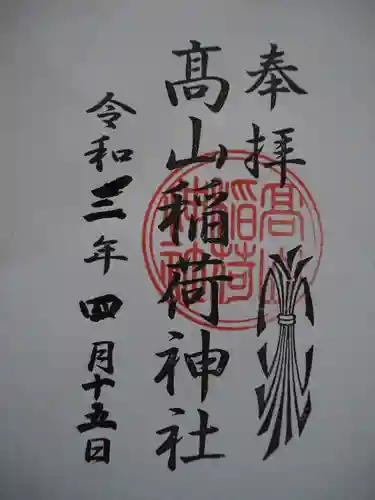 奉拝
髙山稲荷神社
令和三年四月十五日
髙山稲荷神社